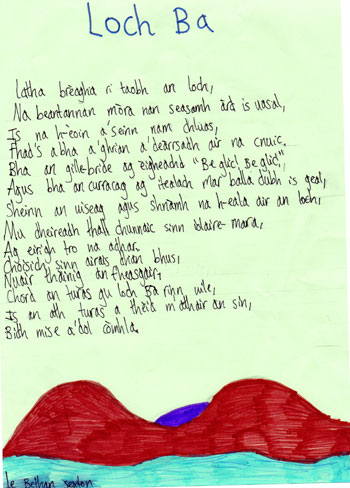 Loch Ba
Latha brèagha ri taobh an loch,
Na beanntannan mòra nan seasamh àrd is uasal,
Is na h-eòin a'seinn nam chluas,
Fhad's a bha a'ghrian a'dearrsadh air na cnuic.
Bha an gille-brìde ag èigheachd "Be glic! Be glic!",
Agus bha an curracag ag itealach mar balla dubh is geal,
Sheinn an uiseag agus shnàmh na h-eala air an loch,
Mu dheireadh thall chunnaic sinn iolaire-mara,
Ag èirigh tro na adhar.
Choisich sinn airais dhan bhus,
Nuair thàinig an fheasgair,
Chord an turas gu loch Ba rinn uile,
Is an ath turas a thèid m'athair an sin,
Bidh mise a'dol còmhla.
le Bethan